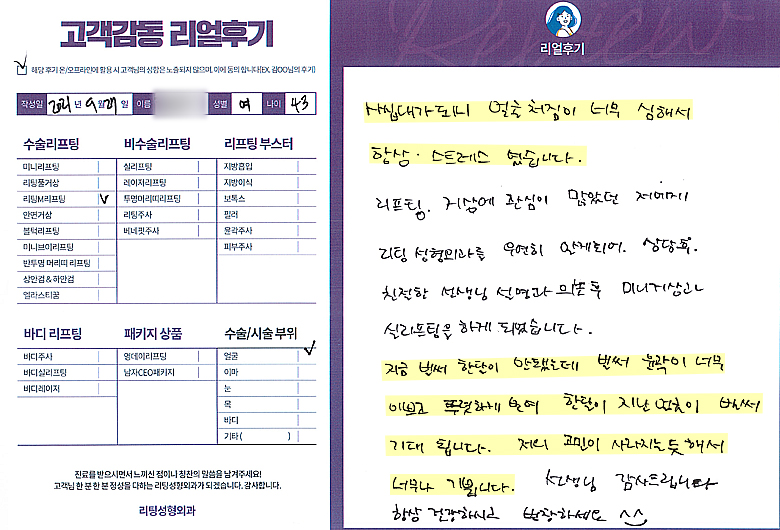 고객감동 리얼후기
해당 후기 온/오프라인에 활용 시 고객님의 성함은 노출되지 않으며, 이에 동의 합니다(EX. 김OO님의 후기)
작성일 2021 년 9 월 27 일 이름 성별 여 나이 43
수술리프팅
미니리프팅
리팅풀거상
리팅M리프팅
안면거상
블럭리프팅
미니브이리프팅
반투명 머리띠 리프팅
상안검 & 하안검
엘라스티꿈
비수술리프팅
실리프팅
레이저리프팅
투명머리띠리프팅
리팅주사
버네핏주사
리프팅 부스터
지방흡입
지방이식
보톡스
필러
윤곽주사
피부주사
바디 리프팅
바디주사
바디실리프팅
바디레이저
패키지 상품
영데이리프팅
남자CEO패키지
수술/시술 부위
얼굴
이마
눈
목
바디
기타 ( )
진료를 받으시면서 느끼신 점이나 칭찬의 말씀을 남겨주세요!
고객님 한 분 한 분 정성을 다하는 리팅성형외과가 되겠습니다. 감사합니다.
리팅성형외과
리얼후기
사십대가 되니 얼굴 처짐이 너무 심해서
항상 스트레스 였습니다.
리프팅, 거상에 관심이 많았던 저에게
리팅 성형외과를 우연히 알게되어. 상담후.
친절한 선생님 설명과 의논 후 미니거상과
실리프팅을 하게 되었습니다.
지금 벌써 한달이 안됐는데 벌써 윤곽이 너무
이쁘고 뚜렷하게 보여 한달이 지난 얼굴이 벌써
기대 됩니다. 저의 고민이 사라지는듯 해서
너무나 기쁩니다. 선생님 감사드립니다
항상 건강하시고 번창하세요 ^^